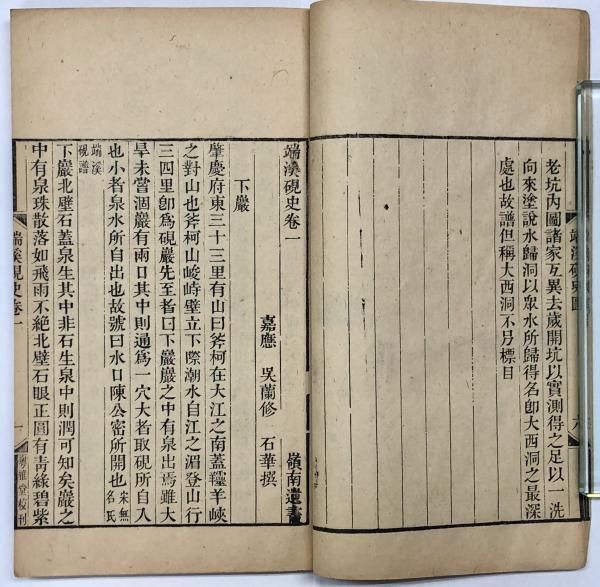 老坑內圖諸家互異去歲開坑以實測得之足以一洗
向來塗說水歸洞以眾水所歸得名卽大西洞之最深
處也故譜但稱大西洞不另標目
端溪硯史圖
六
端溪硯史卷一
嶺南遺書
嘉應 吳蘭修 石華撰
下巖
肇慶府東三十三里有山曰斧柯在大江之南蓋羚羊峽
之對山也斧柯山峻峙壁立下際潮水自江之湄登山行
三四里卽爲硯巖先至者曰下巖巖之中有泉出焉雖大
旱未嘗涸巖有兩口其中則通爲一穴大者取硯所自入
也小者泉水所自出也故號曰水口陳公密所開也宋無名氏
端溪硯譜
下巖北壁石蓋泉生其中非石生泉中則潤可知矣巖之
中有泉珠散落如飛雨不絕北壁石眼正圓有靑綠碧紫
端溪硯史卷一
一
粵雅堂校刊